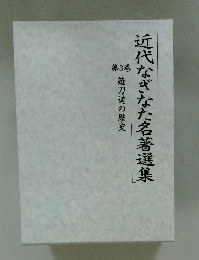 近代なぎなた名著選集
第3巻
薙刀道の歴史